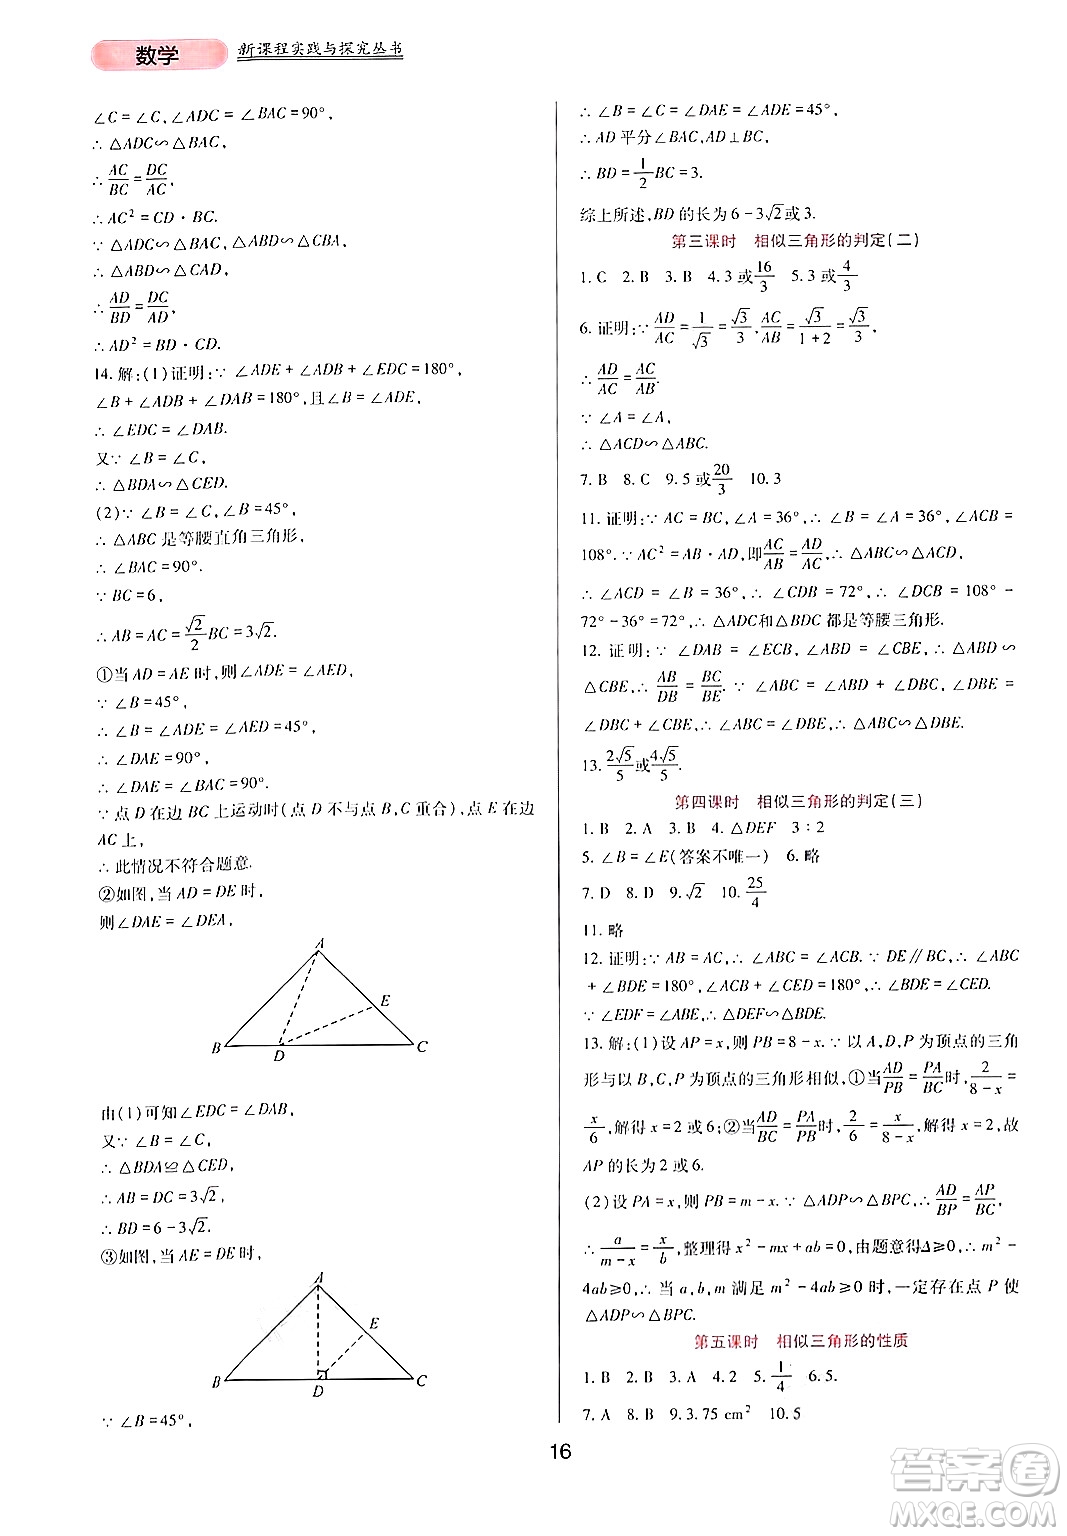 数学
新课程实践与探究丛书
∠C=∠C,∠ADC=∠BAC=90°,
∴△ADC∽△BAC,
∴AC/BC=DC/AC,
∴AC²=CD·BC.
∵△ADC∽△BAC,△ABD∽△CBA,
∴△ABD∽△CAD,
∴AD/BD=DC/AD,
∴AD²=BD·CD.
14.解:(1)证明:∵∠ADE+∠ADB+∠EDC=180°,
∠B+∠ADB+∠DAB=180°,且∠B=∠ADE,
∴∠EDC=∠DAB.
又∵∠B=∠C,
∴△BDA∽△CED.
(2)∵∠B=∠C,∠B=45°,
∴△ABC是等腰直角三角形,
∴∠BAC=90°.
∵BC=6,
∴AB=AC=√2/2BC=3√2.
①当AD=AE时,则∠ADE=∠AED,
∵∠B=45°,
∴∠B=∠ADE=∠AED=45°,
∴∠DAE=90°,
∴∠DAE=∠BAC=90°.
∵点D在边BC上运动时(点D不与点B,C重合),点E在边
AC上,
∴此情况不符合题意.
②如图,当AD=DE时,
则∠DAE=∠DEA,
A
E
B
D
C
由(1)可知∠EDC=∠DAB,
又∵∠B=∠C,
∴△BDA≌△CED,
∴AB=DC=3√2,
∴BD=6-3√2.
③如图,当AE=DE时,
A
E
B
D
C
∵∠B=45°,
∴∠B=∠C=∠DAE=∠ADE=45°,
∴AD平分∠BAC,AD⊥BC,
∴BD=1/2BC=3.
综上所述,BD的长为6-3√2或3.
第三课时 相似三角形的判定(二)
1.C 2.B 3.B 4.3或16/3 5.3或4/3
6.证明:∵AD/AC=1/√3=√3/3,AC/AB=√3/1+2=√3/3,
∴AD/AC=AC/AB.
∵∠A=∠A,
∴△ACD∽△ABC.
7.B 8.C 9.5或20/3 10.3
11.证明:∵AC=BC,∠A=36°,∴∠B=∠A=36°,∠ACB=
108°.∵AC²=AB·AD,即AC/AB=AD/AC,∴△ABC∽△ACD,
∴∠ACD=∠B=36°,∴∠CDB=72°,∴∠DCB=108°-
72°-36°=72°,∴△ADC和△BDC都是等腰三角形.
12.证明:∵∠DAB=∠ECB,∠ABD=∠CBE,∴△ABD∽
△CBE,∴AB/DB=BC/BE.∵∠ABC=∠ABD+∠DBC,∠DBE=
∠DBC+∠CBE,∴∠ABC=∠DBE,∴△ABC∽△DBE.
13.2√5/5或4√5/5.
第四课时 相似三角形的判定(三)
1.B 2.A 3.B 4.△DEF 3:2
5.∠B=∠E(答案不唯一) 6.略
7.D 8.D 9.√2 10.25/4
11.略
12.证明:∵AB=AC,∴∠ABC=∠ACB.∵DE∥BC,∴∠ABC
+∠BDE=180°,∠ACB+∠CED=180°,∴∠BDE=∠CED.
∵∠EDF=∠ABE,∴△DEF∽△BDE.
13.解:(1)设AP=x,则PB=8-x.∵以A,D,P为顶点的三角
形与以B,C,P为顶点的三角形相似,①当AD/PB=PA/BC时,2/8-x=
x/6,解得x=2或6;②当AD/BC=PA/PB时,2/6=x/8-x,解得x=2,故
AP的长为2或6.
(2)设PA=x,则PB=m-x.∵△ADP∽△BPC,∴AD/BP=AP/BC,
∴a/m-x=x/b,整理得x²-mx+ab=0,由题意得Δ≥0,∴m²-
4ab≥0,∴当a,b,m满足m²-4ab≥0时,一定存在点P使
△ADP∽△BPC.
第五课时 相似三角形的性质
1.B 2.B 3.A 4.2 5.1/4 6.5.
7.A 8.B 9.3.75 cm² 10.5
16
答案圈
MXQE.COM